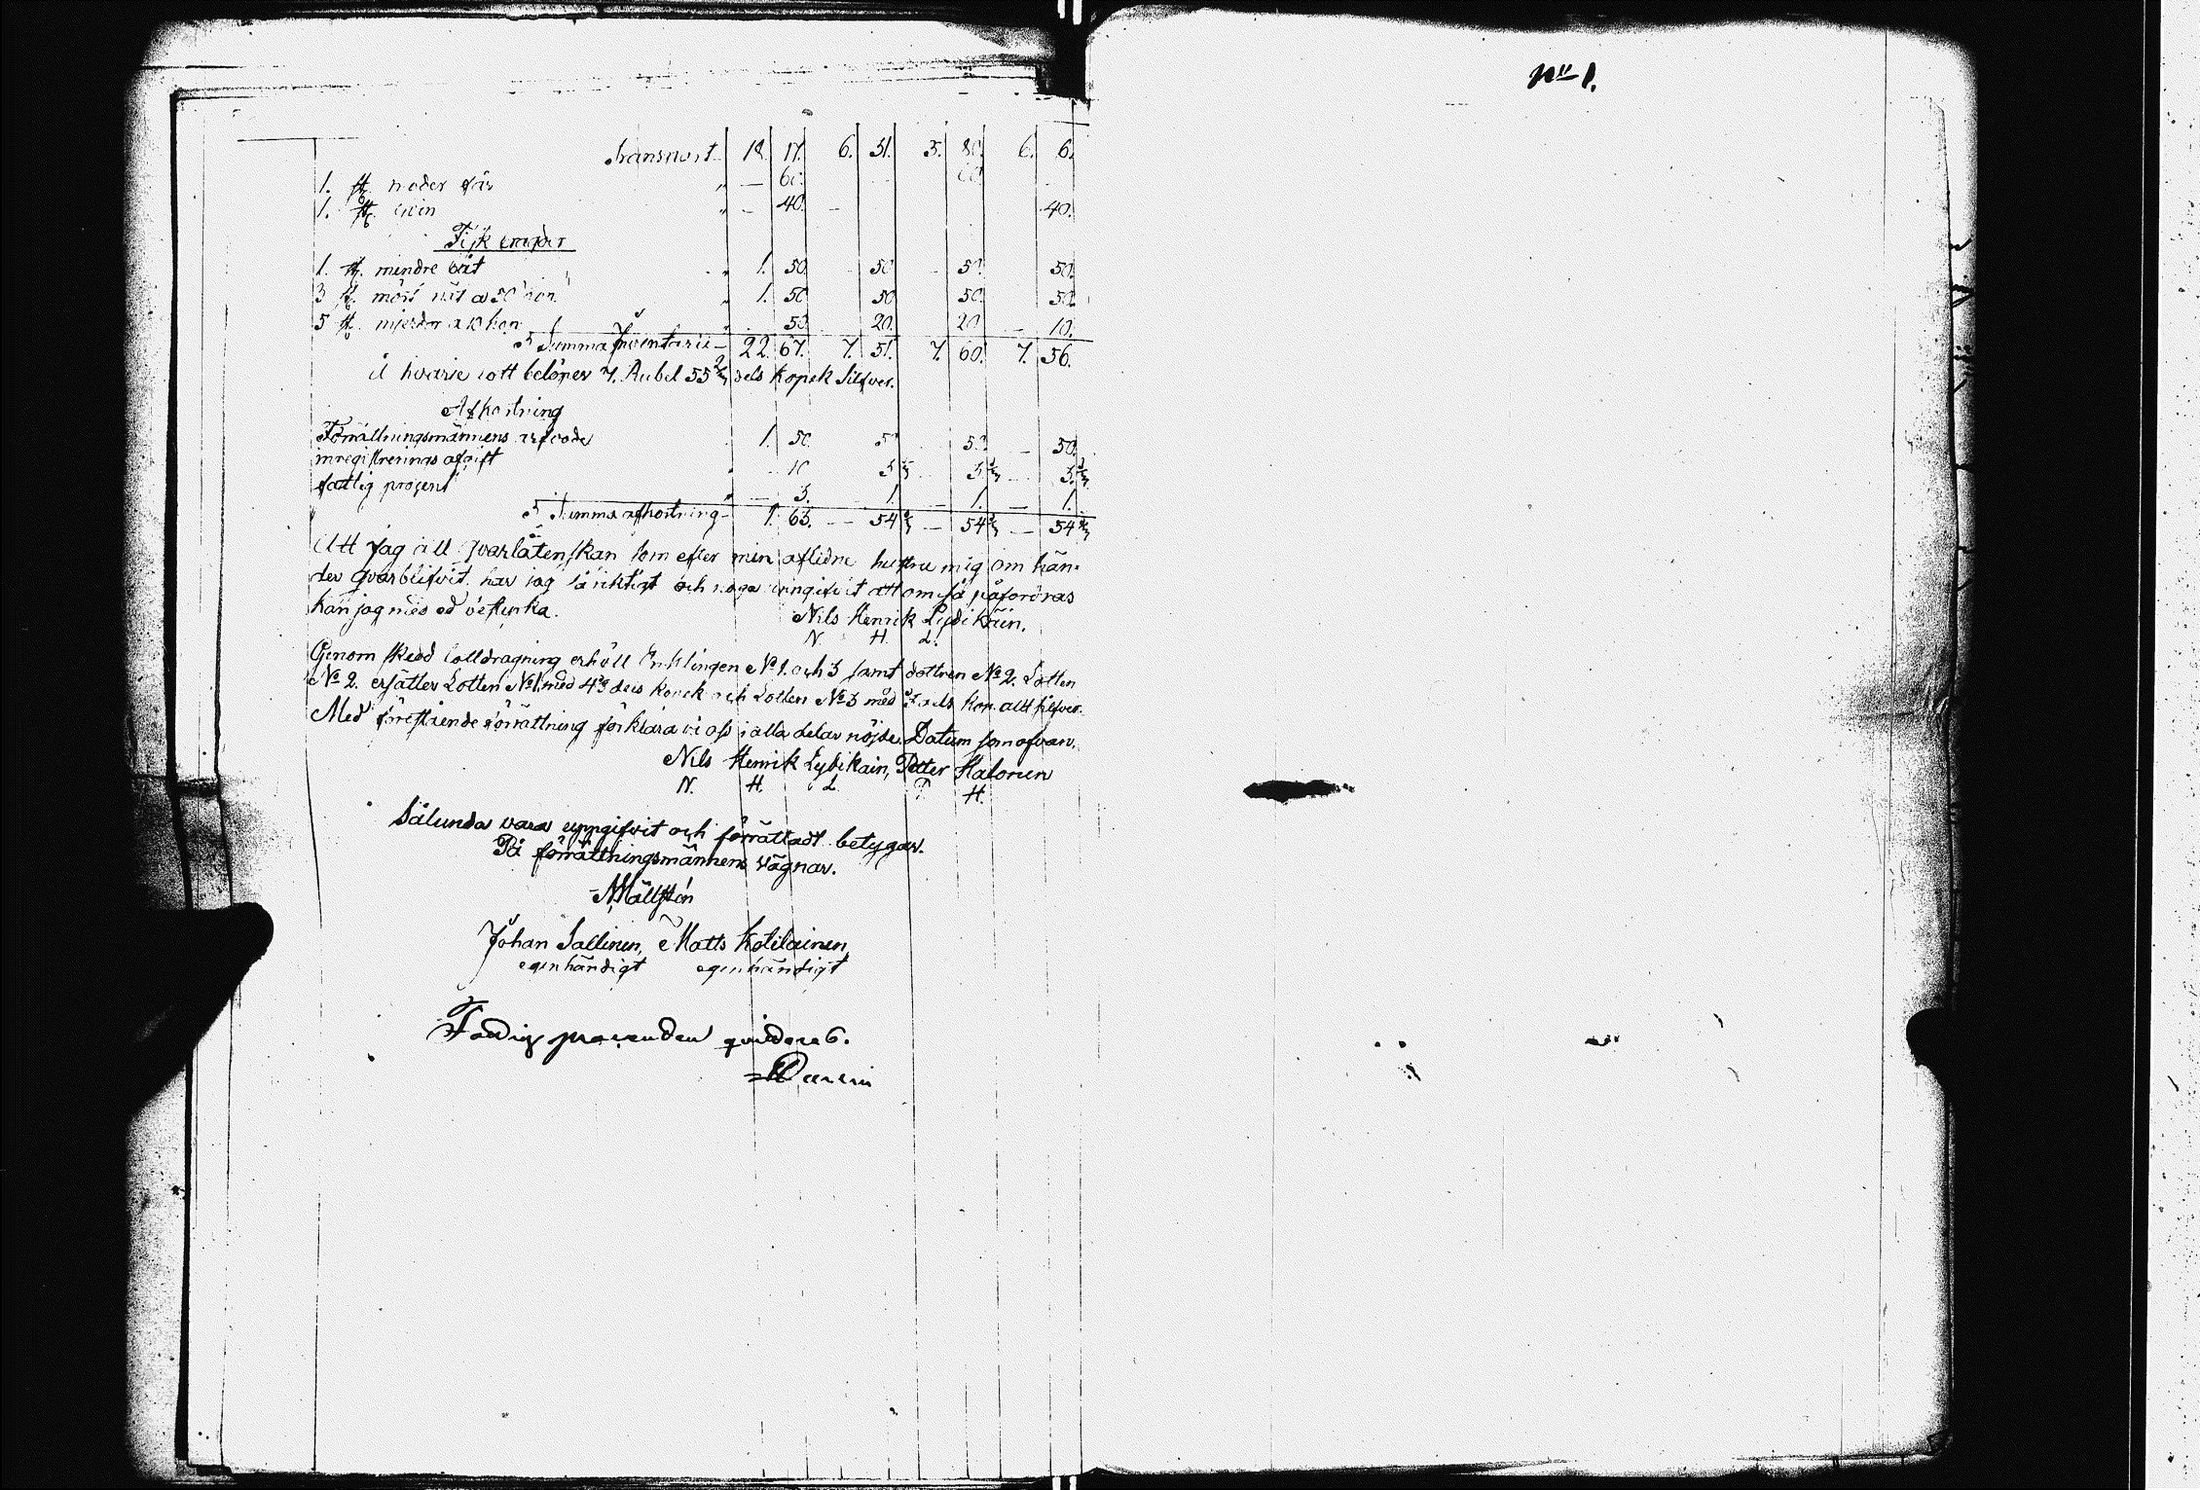 Nº 1.
Transport 18. 17. 6. 51. 5. 80. 6. 6.
1. st. moder får " — 60. 60
1. st. svin " - 40. - 40.
Fisk
1. st. mindre båt " 1. 50 50 50. 50.
3 st. mört nät a 50 kop. " 1. 50 50 50. 50.
5 st. mjerdor a 10 kop " 50. 20. 20 — 10.
Summa Inventarii — 22. 67. 7. 51. 7. 60. 7. 56.
å hvarje lott belöper 7. Rubel 55 2/3 dels kopek Silfver.
Afkortning
Förrättningsmännens arfvode 1. 50. 50 50. — 50.
inregistrerings afgift " 10 3 1/3 3 1/3 3 1/3
fattig procent " — 3. 1. — 1. — 1.
Summa afkortning — 1. 63. — 54 1/3 — 54 1/3 — 54 1/3
Att jag all qvarlåtenskan som efter min aflidne hustru mig om hän-
der qvarblifvit. har jag så riktigt och noga uppgifvit att om så påfordras
kan jag med ed besturka.
Nils Henrik Lydikäin.
N. H. L.
Genom skedd lottdragning erhöll Enklingen Nº 1. och 3 samt dottren Nº 2. Lotten
Nº 2. ersätter Lotten Nº 1. med dels kopek och Lotten Nº 3 med dels kop. allt silfver.
Med förestående förrättning förklara vi oss i alla delar nöjde. Datum som ofvan.
Nils Henrik Lydikain, Petter Halonen
N. H. L. P. H.
Sålunda vara uppgifvit och förrättadt betygar.
På förrättningsmännens vägnar.
N Mällstén
Johan Sallinen, Matts Kotilainen,
egenhändigt egenhändigt
Fattig procenden qvitteras.